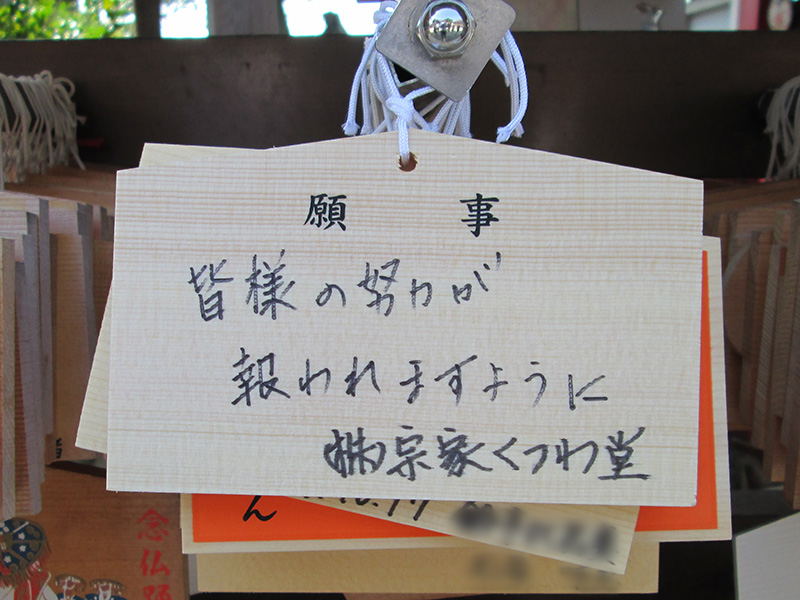 願 事
皆様の努力が
報われますように
㈱宗家くつわ堂
ん
念仏